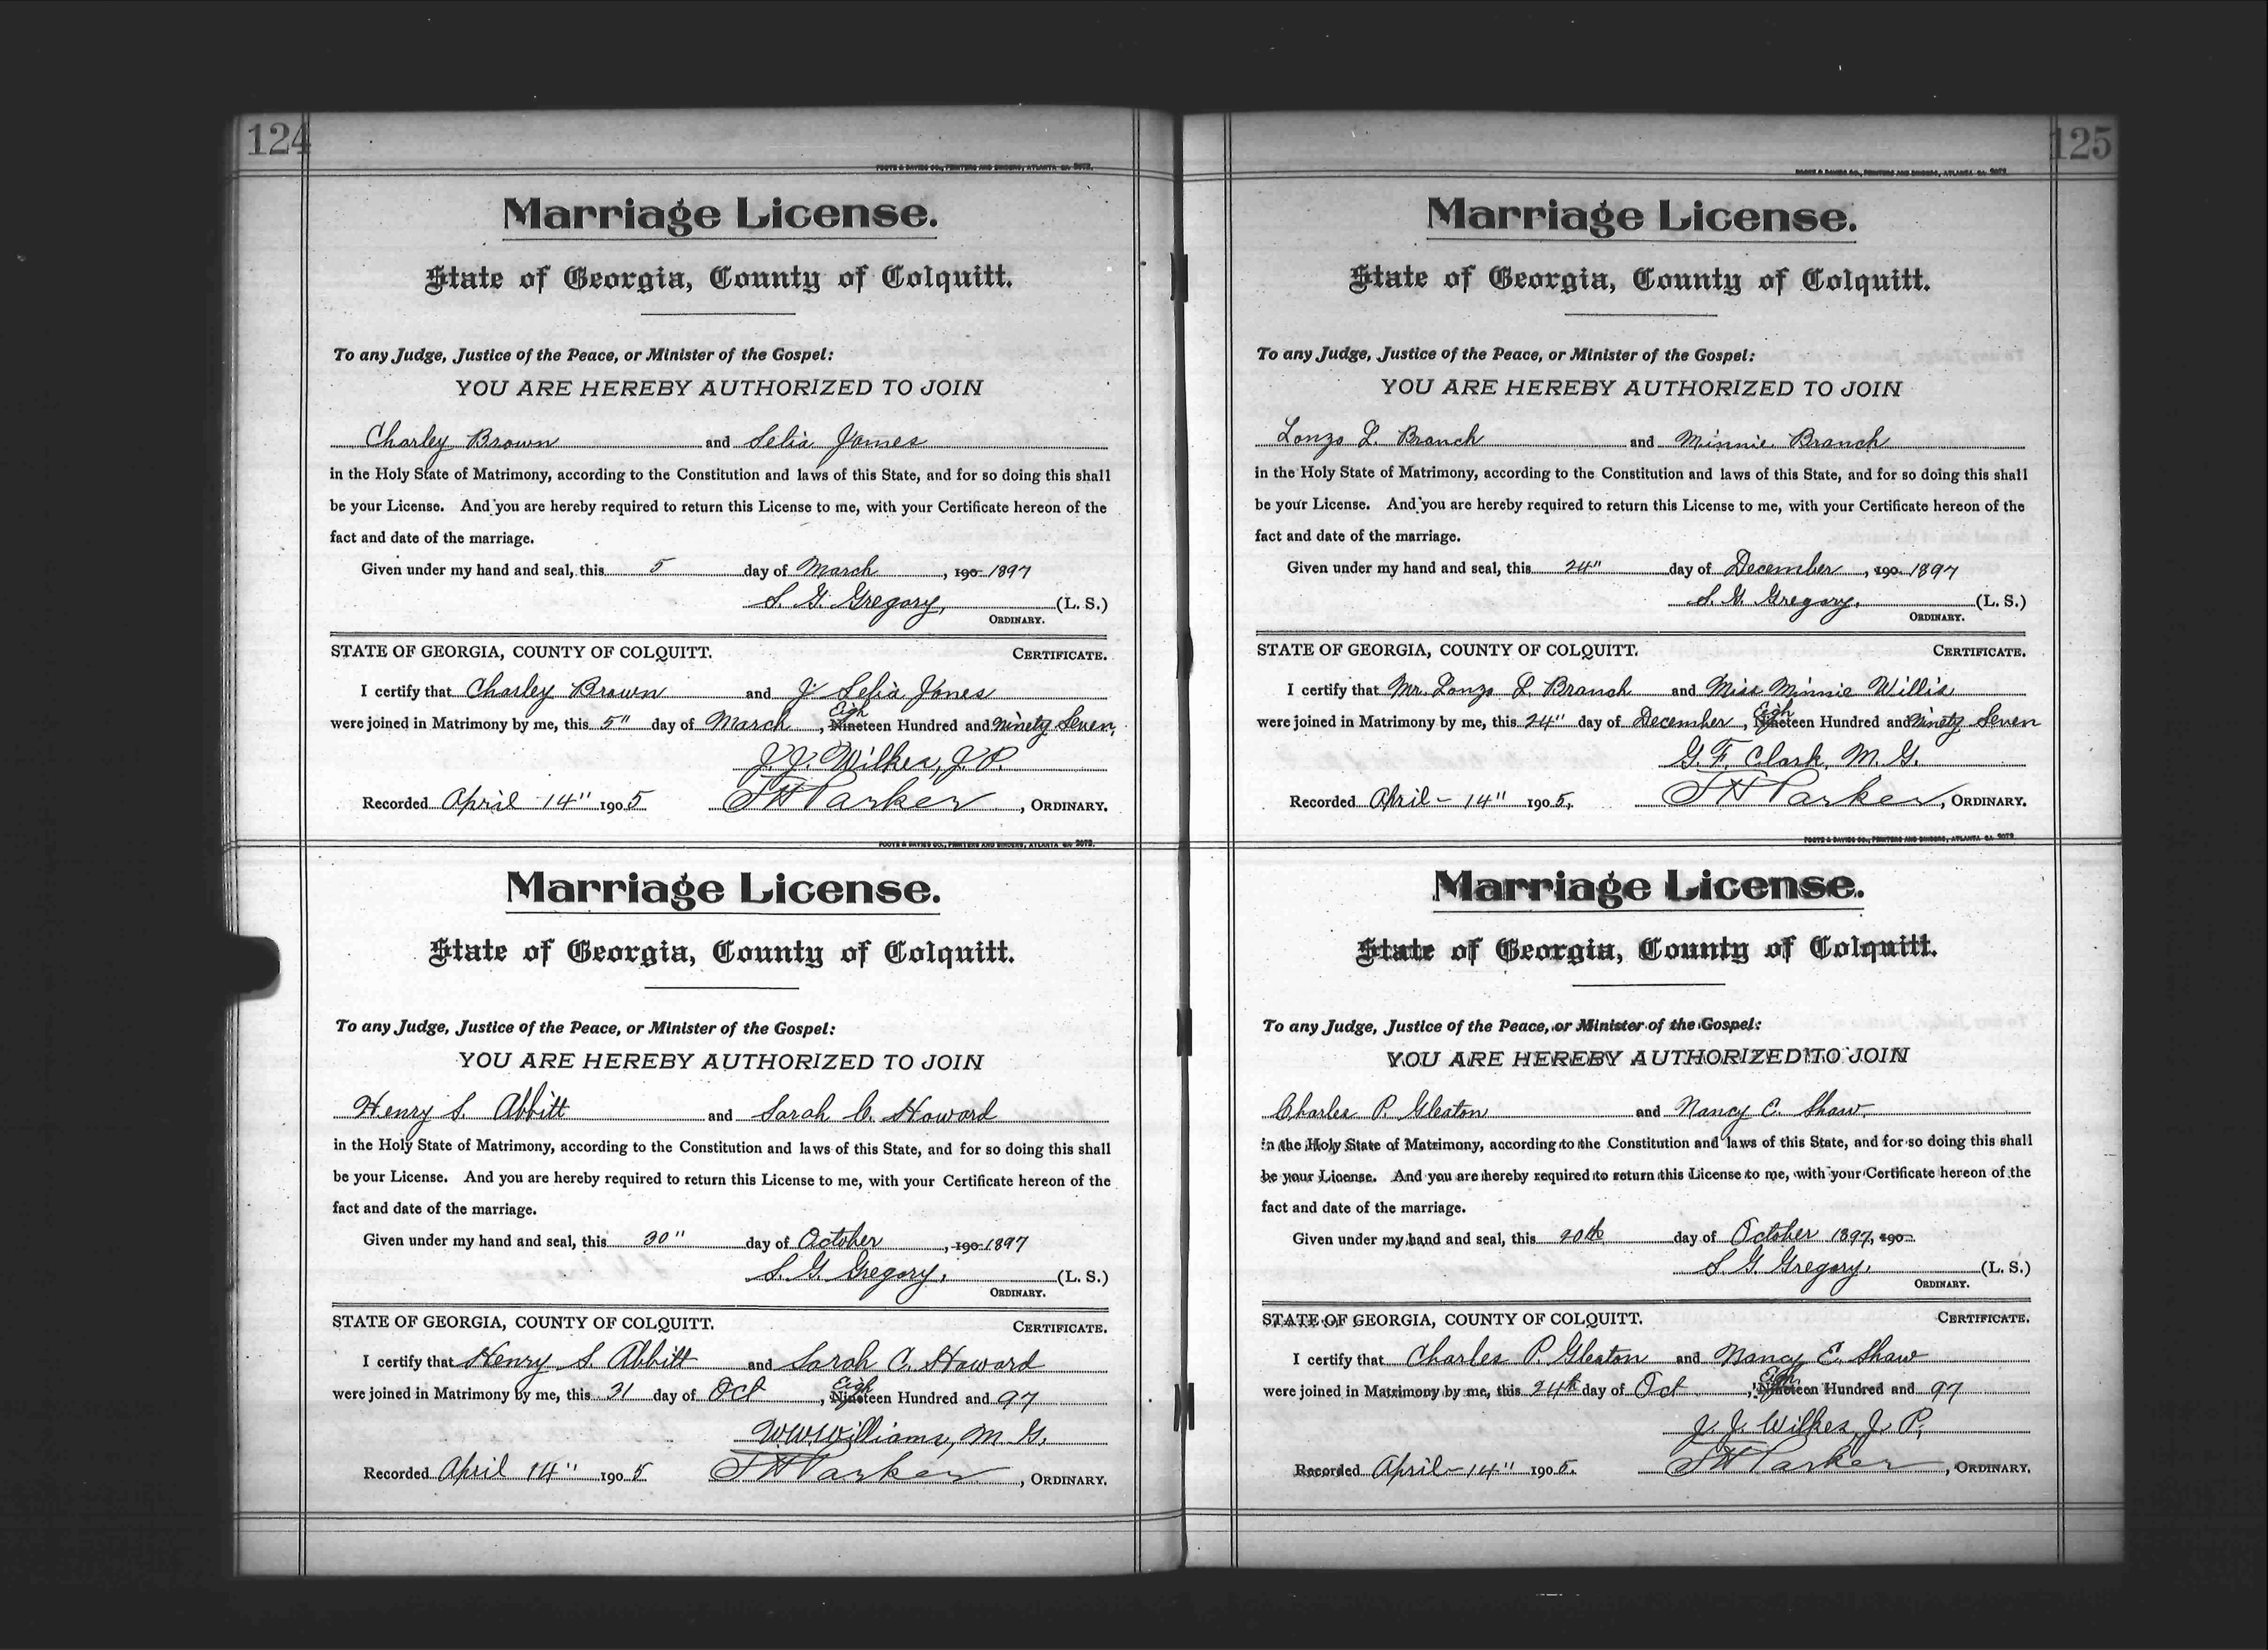 124
FOOTE & DAVIES CO., PRINTERS AND BINDERS, ATLANTA GA 3072.
Marriage License.
State of Georgia, County of Colquitt.
To any Judge, Justice of the Peace, or Minister of the Gospel:
YOU ARE HEREBY AUTHORIZED TO JOIN
Charley Brown and Selia James
in the Holy State of Matrimony, according to the Constitution and laws of this State, and for so doing this shall
be your License. And you are hereby required to return this License to me, with your Certificate hereon of the
fact and date of the marriage.
Given under my hand and seal, this 5 day of March, 190 1897
S. G. Gregory, (L. S.)
ORDINARY.
STATE OF GEORGIA, COUNTY OF COLQUITT. CERTIFICATE.
I certify that Charley Brown and J. Selia Jones
Eigh
were joined in Matrimony by me, this 5" day of March, Nineteen Hundred and Ninety Seven,
J. J. Wilkes, J. P.
Recorded April 14" 1905 T H Parker, ORDINARY.
FOOTE & DAVIES CO., PRINTERS AND BINDERS, ATLANTA GA 3072.
Marriage License.
State of Georgia, County of Colquitt.
To any Judge, Justice of the Peace, or Minister of the Gospel:
YOU ARE HEREBY AUTHORIZED TO JOIN
Henry S. Abbitt and Sarah C. Howard
in the Holy State of Matrimony, according to the Constitution and laws of this State, and for so doing this shall
be your License. And you are hereby required to return this License to me, with your Certificate hereon of the
fact and date of the marriage.
Given under my hand and seal, this 30" day of October, 190 1897
S. G. Gregory, (L. S.)
ORDINARY.
STATE OF GEORGIA, COUNTY OF COLQUITT. CERTIFICATE.
I certify that Henry S. Abbitt and Sarah C. Howard
Eigh
were joined in Matrimony by me, this 31 day of Oct, Nineteen Hundred and 97
W. W. Williams, M. G.
Recorded April 14" 1905 T H Parker, ORDINARY.
125
FOOTE & DAVIES CO., PRINTERS AND BINDERS, ATLANTA GA 3072
Marriage License.
State of Georgia, County of Colquitt.
To any Judge, Justice of the Peace, or Minister of the Gospel:
YOU ARE HEREBY AUTHORIZED TO JOIN
Lonzo L. Branch and Minnie Branch
in the Holy State of Matrimony, according to the Constitution and laws of this State, and for so doing this shall
be your License. And you are hereby required to return this License to me, with your Certificate hereon of the
fact and date of the marriage.
Given under my hand and seal, this 24" day of December, 190 1897
S. G. Gregory, (L. S.)
ORDINARY.
STATE OF GEORGIA, COUNTY OF COLQUITT. CERTIFICATE.
I certify that Mr. Lonzo L. Branch and Miss Minnie Willis
Eigh
were joined in Matrimony by me, this 24" day of December, Nineteen Hundred and Ninety Seven
G. F. Clark, M. G.
Recorded April - 14" 1905, T H Parker, ORDINARY.
FOOTE & DAVIES CO., PRINTERS AND BINDERS, ATLANTA GA 3072
Marriage License.
State of Georgia, County of Colquitt.
To any Judge, Justice of the Peace, or Minister of the Gospel:
YOU ARE HEREBY AUTHORIZED TO JOIN
Charles P. Gleaton and Nancy E. Shaw.
in the Holy State of Matrimony, according to the Constitution and laws of this State, and for so doing this shall
be your License. And you are hereby required to return this License to me, with your Certificate hereon of the
fact and date of the marriage.
Given under my hand and seal, this 20th day of October 1897, 190
S. G. Gregory, (L. S.)
ORDINARY.
STATE OF GEORGIA, COUNTY OF COLQUITT. CERTIFICATE.
I certify that Charles P. Gleaton and Nancy E. Shaw
Eigh
were joined in Matrimony by me, this 24th day of Oct, Nineteen Hundred and 97
J. J. Wilkes, J. P.
Recorded April - 14" 1905. T H Parker, ORDINARY.